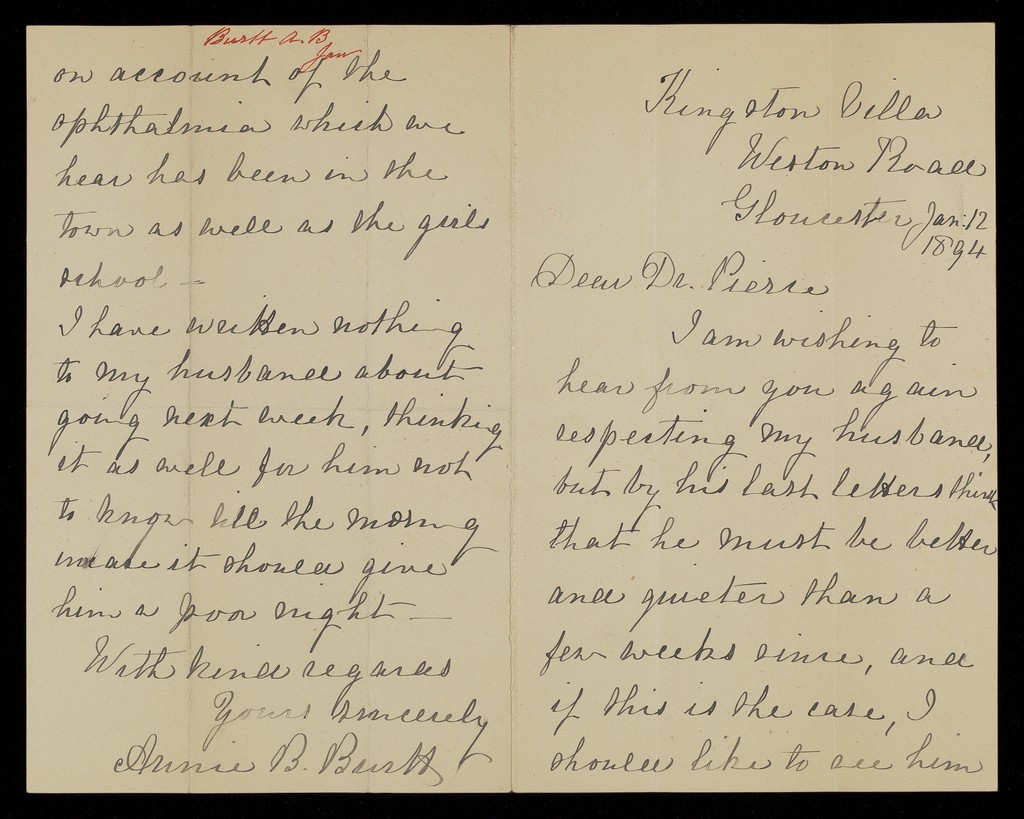 Burtt A. B
Jan
on account of the
ophthalmia which we
hear has been in the
town as well as the girls
school —
I have written nothing
to my husband about
going next week, thinking
it as well for him not
to know till the morning
incase it should give
him a poor night —
With kind regards
Yours sincerely
Annie B. Burtt
Kingston Villa
Weston Road
Gloucester Jan: 12
1894
Dear Dr. Pierce
I am wishing to
hear from you again
respecting my husband,
but by his last letters think
that he must be better
and quieter than a
few weeks since, and
if this is the case, I
should like to see him